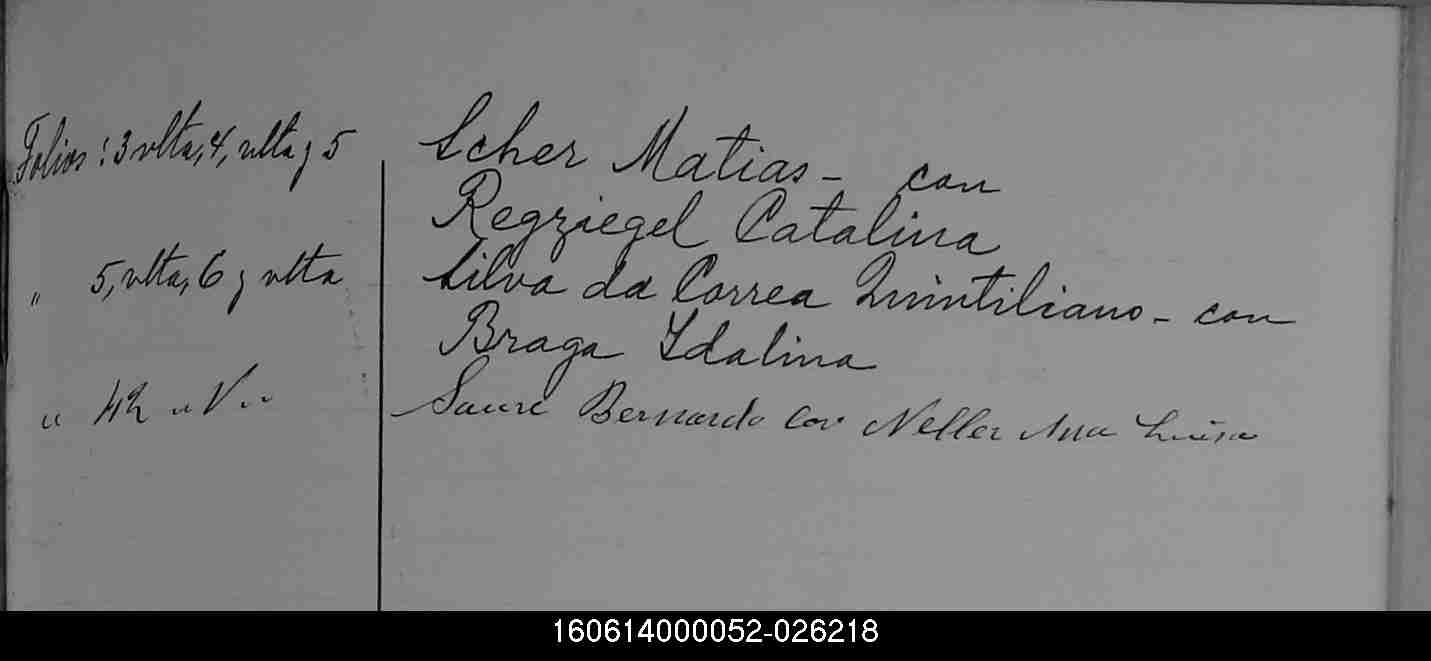 Folios: 3 vlta, 4, vlta y 5 Scher Matias - con
Regziegel Catalina
" 5, vlta, 6 y vlta Silva da Correa Quintiliano - con
Braga Idalina
" 42 " V " Sauré Bernardo con Neller Ana Luisa
160614000052-026218